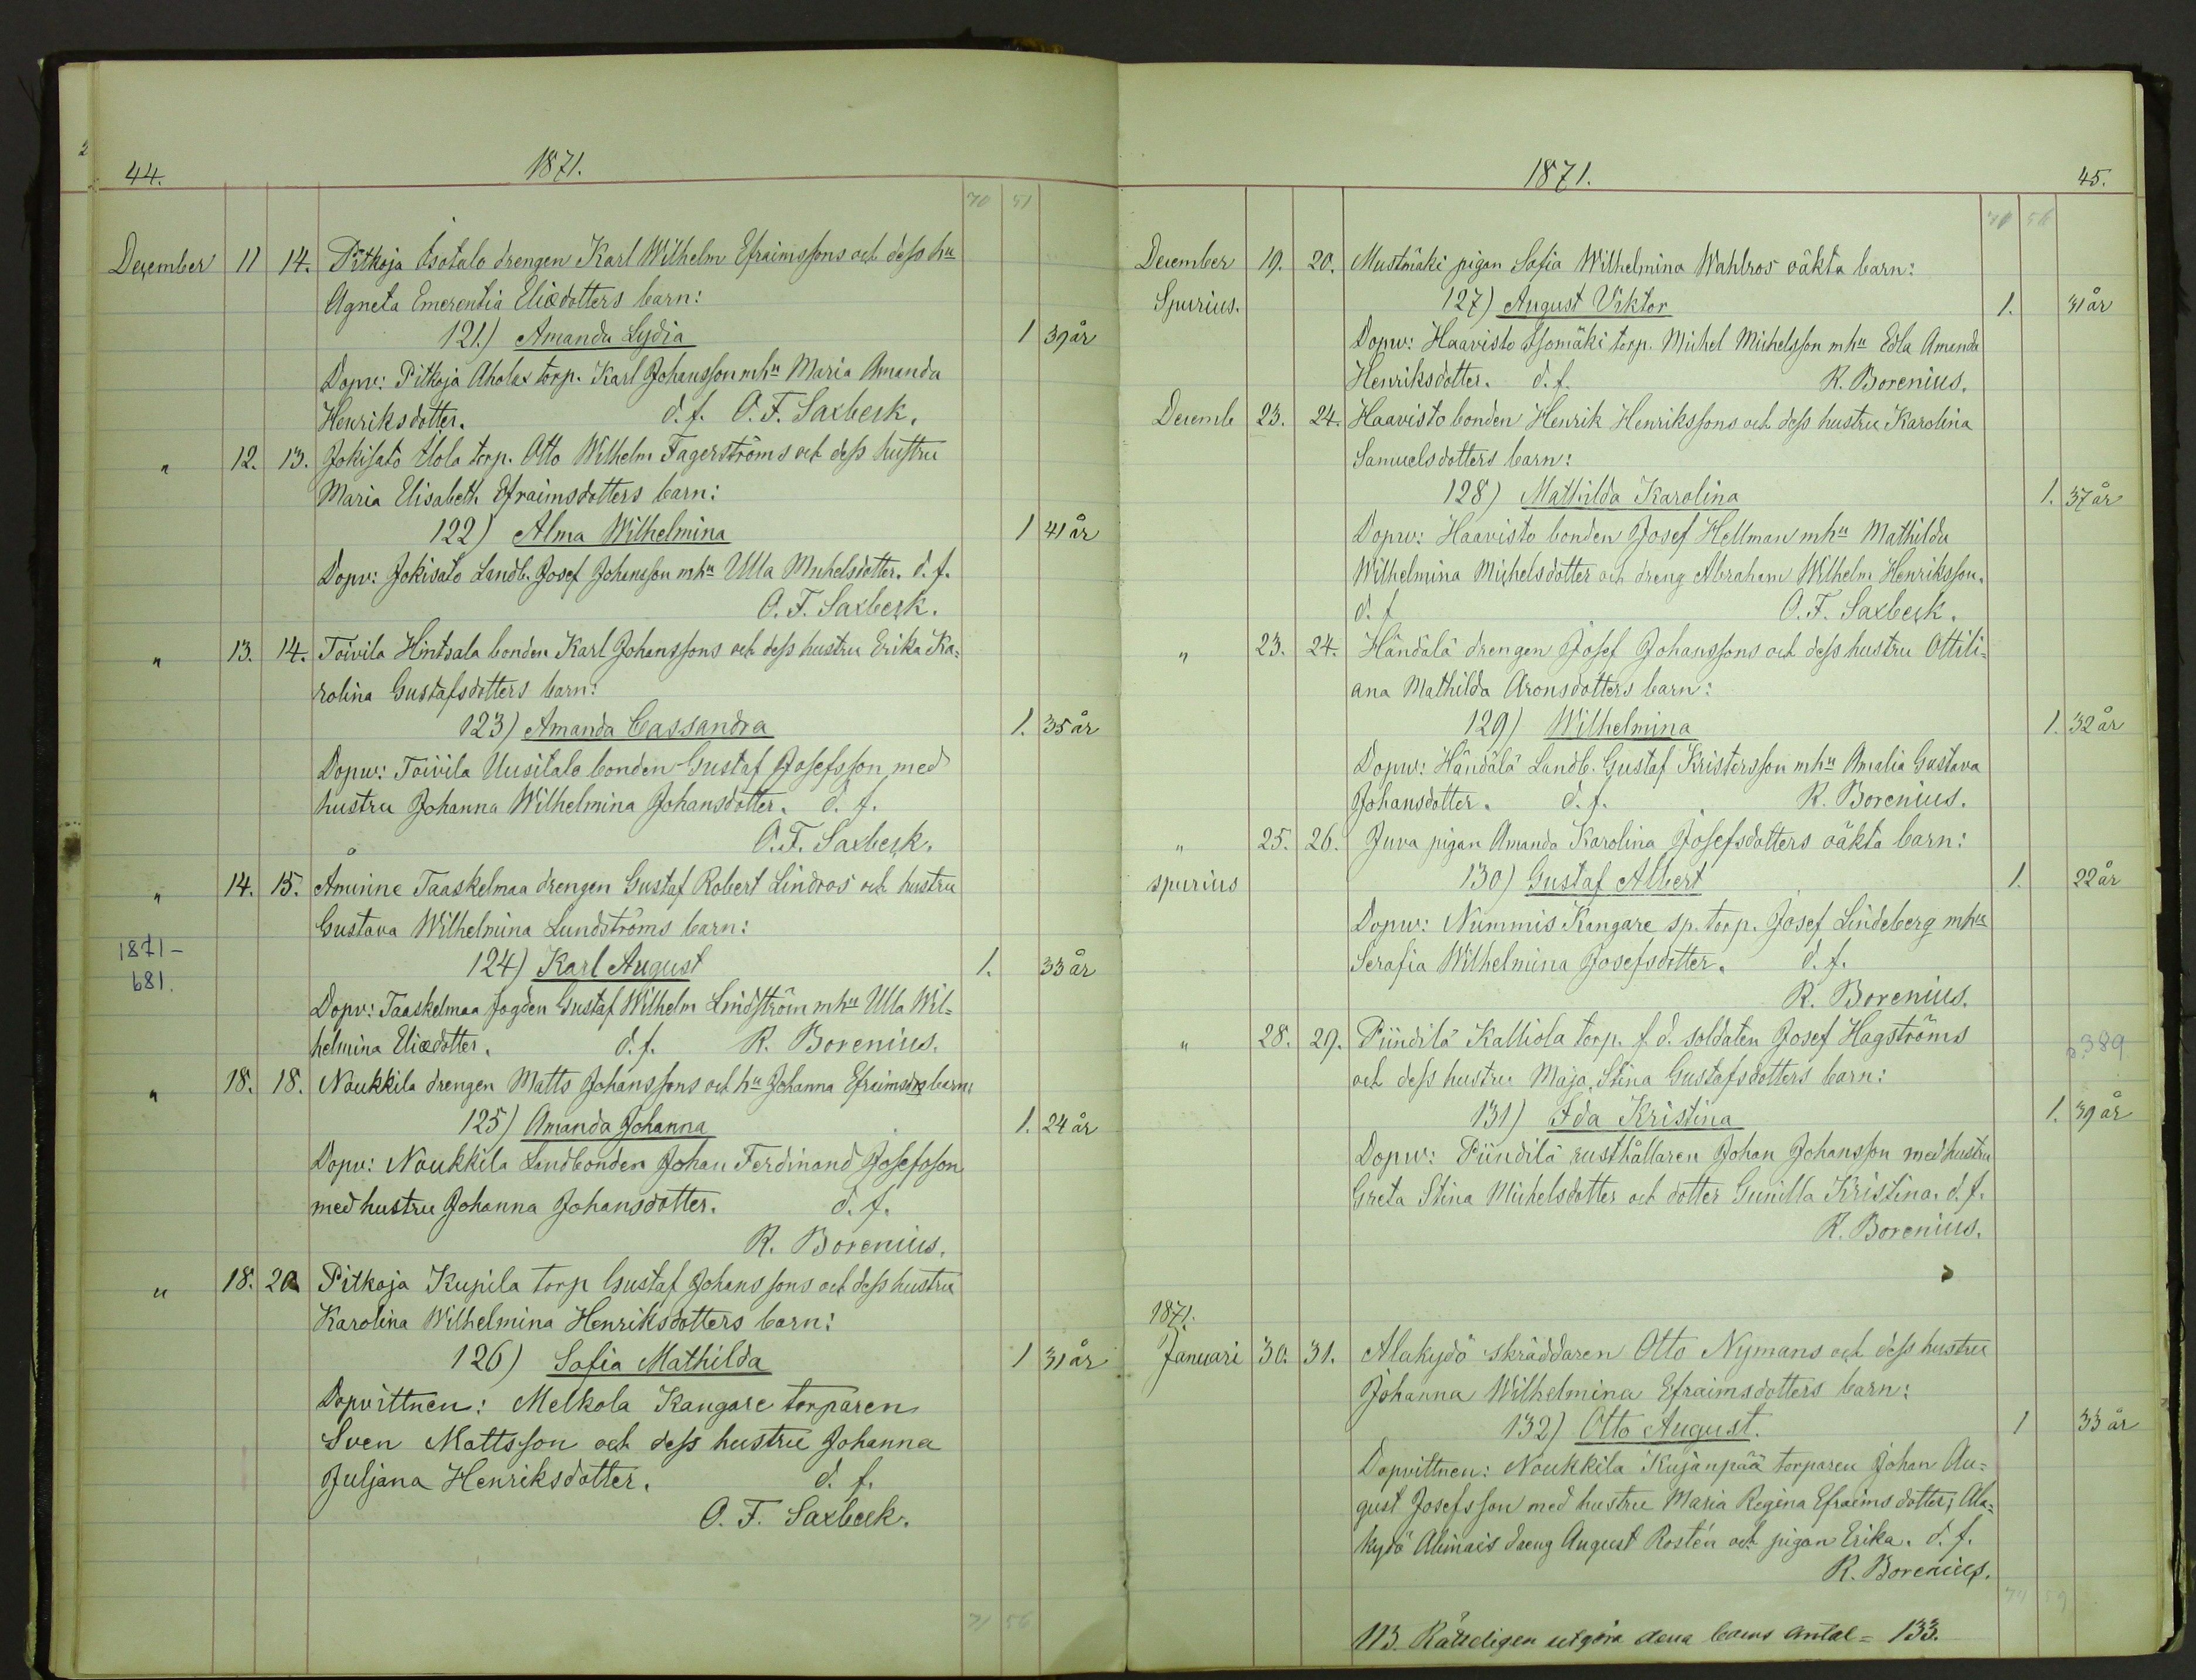 44.
1871.
70 51
December 11 14. Pitkoja Isotalo drengen Karl Wilhelm Efraimssons och dess hu
Agneta Emerentia Eliædotters barn:
121.) Amanda Lydia 1 39 år
Dopv: Pitkoja Ahola torp. Karl Johansson mhu Maria Amanda
Henriksdotter. d. f. O. F. Saxbeck.
" 12. 13. Jokisato Ilola torp. Otto Wilhelm Fagerströms och dess hustru
Maria Elisabeth Efraimsdotters barn:
122) Alma Wilhelmina 1 41 år
Dopv: Jokisato Landb. Josef Johansson mhu Ulla Michelsdotter. d. f.
O. F. Saxbeck.
" 13. 14. Toivila Hintsala bonden Karl Johanssons och dess hustru Erika Ka=
rolina Gustafsdotters barn:
123) Amanda Cassandra 1. 35 år
Dopv: Toivila Uusitalo bonden Gustaf Josefsson med
hustru Johanna Wilhelmina Johansdotter. d. f.
O. F. Saxbeck.
" 14. 15. Åminne Taaskelmaa drengen Gustaf Robert Lindros och hustru
Gustava Wilhelmina Lundströms barn:
1871-
124) Karl August 1. 33 år
681.
Dopv: Taaskelmaa fogden Gustaf Wilhelm Lindström mhu Ulla Wil=
helmina Eliædotter. d. f. R. Borenius.
" 18. 18. Noukkila drengen Matts Johanssons och hu Johanna Efraimsdrs barn:
125) Amanda Johanna 1. 24 år
Dopv: Noukkila Landbonden Johan Ferdinand Josefsson
med hustru Johanna Johansdotter. d. f.
R. Borenius.
" 18. 20 Pitkoja Kupila torp Gustaf Johanssons och dess hustru
Karolina Wilhelmina Henriksdotters barn:
126) Sofia Mathilda 1 31 år
Dopvittnen: Melkola Kangare torparen
Sven Mattsson och dess hustru Johanna
Juljana Henriksdotter. d. f.
O. F. Saxbeck.
71 56
1871.
45.
December 19. 20. Mustmäki pigan Sofia Wilhelmina Wahlros oäkta barn:
Spurius. 127) August Viktor 1. 31 år
Dopv: Haavisto Isomäki torp. Michel Michelsson mhu Edla Amanda
Henriksdotter. d. f. R. Borenius.
Decemb 23. 24. Haavisto bonden Henrik Henrikssons och dess hustru Karolina
Samuelsdotters barn:
128) Mathilda Karolina 1. 37 år
Dopv: Haavisto bonden Josef Hellman mhu Mathilda
Wilhelmina Michelsdotter och dreng Abraham Wilhelm Henriksson.
d. f O. F. Saxbeck.
" 23. 24. Händälä drengen Josef Johanssons och dess hustru Ottili=
ana Mathilda Aronsdotters barn:
129) Wilhelmina 1. 32 år
Dopv: Händälä Landb. Gustaf Kristersson mhu Amalia Gustava
Johansdotter. d. f. R. Borenius.
" 25. 26. Juva pigan Amanda Karolina Josefsdotters oäkta barn:
spurius 130) Gustaf Albert 1. 22 år
Dopv: Nummis Kangare sp. torp. Josef Lindeberg mhu
Serafia Wilhelmina Josefsdotter. d. f.
R. Borenius.
" 28. 29. Pündilä Kalliola torp. f. d. soldaten Josef Hagströms
389
och dess hustru Maja Stina Gustafsdotters barn:
131) Ida Kristina 1. 39 år
Dopv: Pündilä rusthållaren Johan Johansson med hustru
Greta Stina Michelsdotter och dotter Gunilla Kristina. d. f.
R. Borenius.
1871.
Januari 30. 31. Alakydö skräddaren Otto Nymans och dess hustru
Johanna Wilhelmina Efraimsdotters barn:
132) Otto August. 1 33 år
Dopvittnen: Noukkila Kujanpää torparen Johan Au=
gust Josefsson med hustru Maria Regina Efraimsdotter; Ala=
kydö Alinais dreng August Rostén och pigan Erika. d. f.
R. Borenius.
113 Rätteligen utgöra dena barns antal = 133.